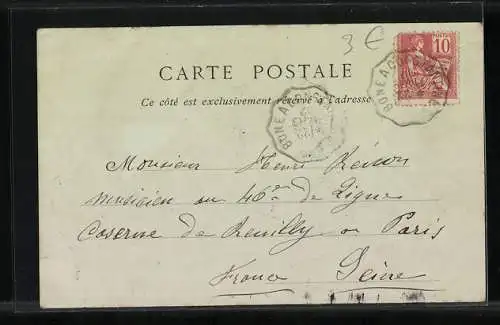 3 €
10
CARTE POSTALE
Ce côté est exclusivement réservé à l'adresse
BONE A
BONE A
Monsieur Henri
musicien au 46e de Ligne
Caserne de Reuilly Paris
France Seine